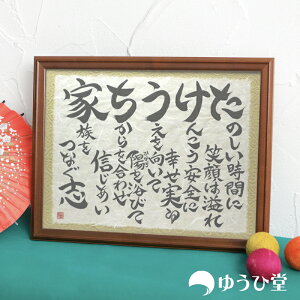 たのしい時間に
笑顔は溢れ
けんこう安全に
幸せ実る
うえを向いて
陽を浴びて
ちからを合わせ
信じあい
家族を
つなぐ志
ゆうひ堂